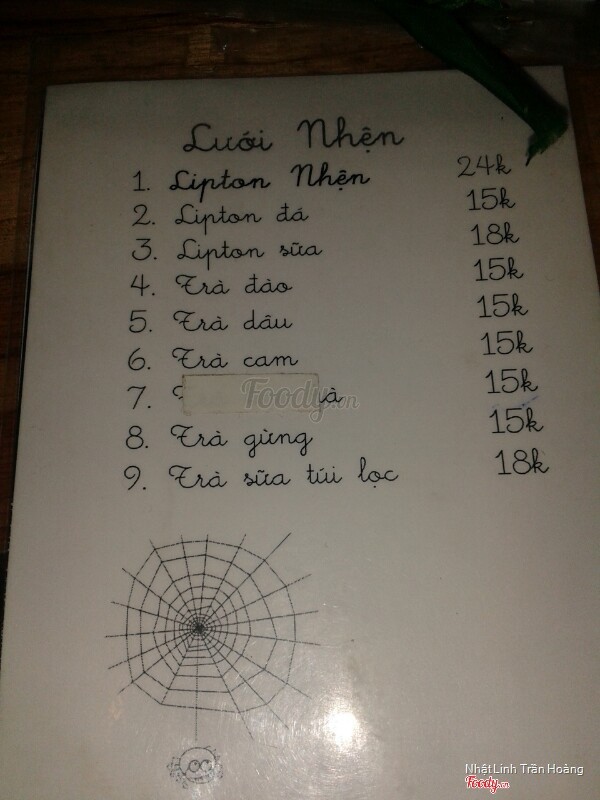 Lưới Nhện
1. Lipton Nhện 24k
2. Lipton đá 15k
3. Lipton sữa 18k
4. Trà đào 15k
5. Trà dâu 15k
6. Trà cam 15k
7. 15k
8. Trà gừng 15k
9. Trà sữa túi lọc 18k
Foody.vn
NhậtLinh Trần Hoàng
Foody.vn